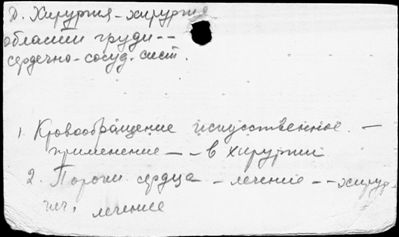 Д. Хирургия - хирургия
области груди --
сердечно-сосуд. сист.
1. Кровообращение искусственное -
применение -- в хирургии
2. Пороки сердца - лечение -- хирур-
гич. лечение